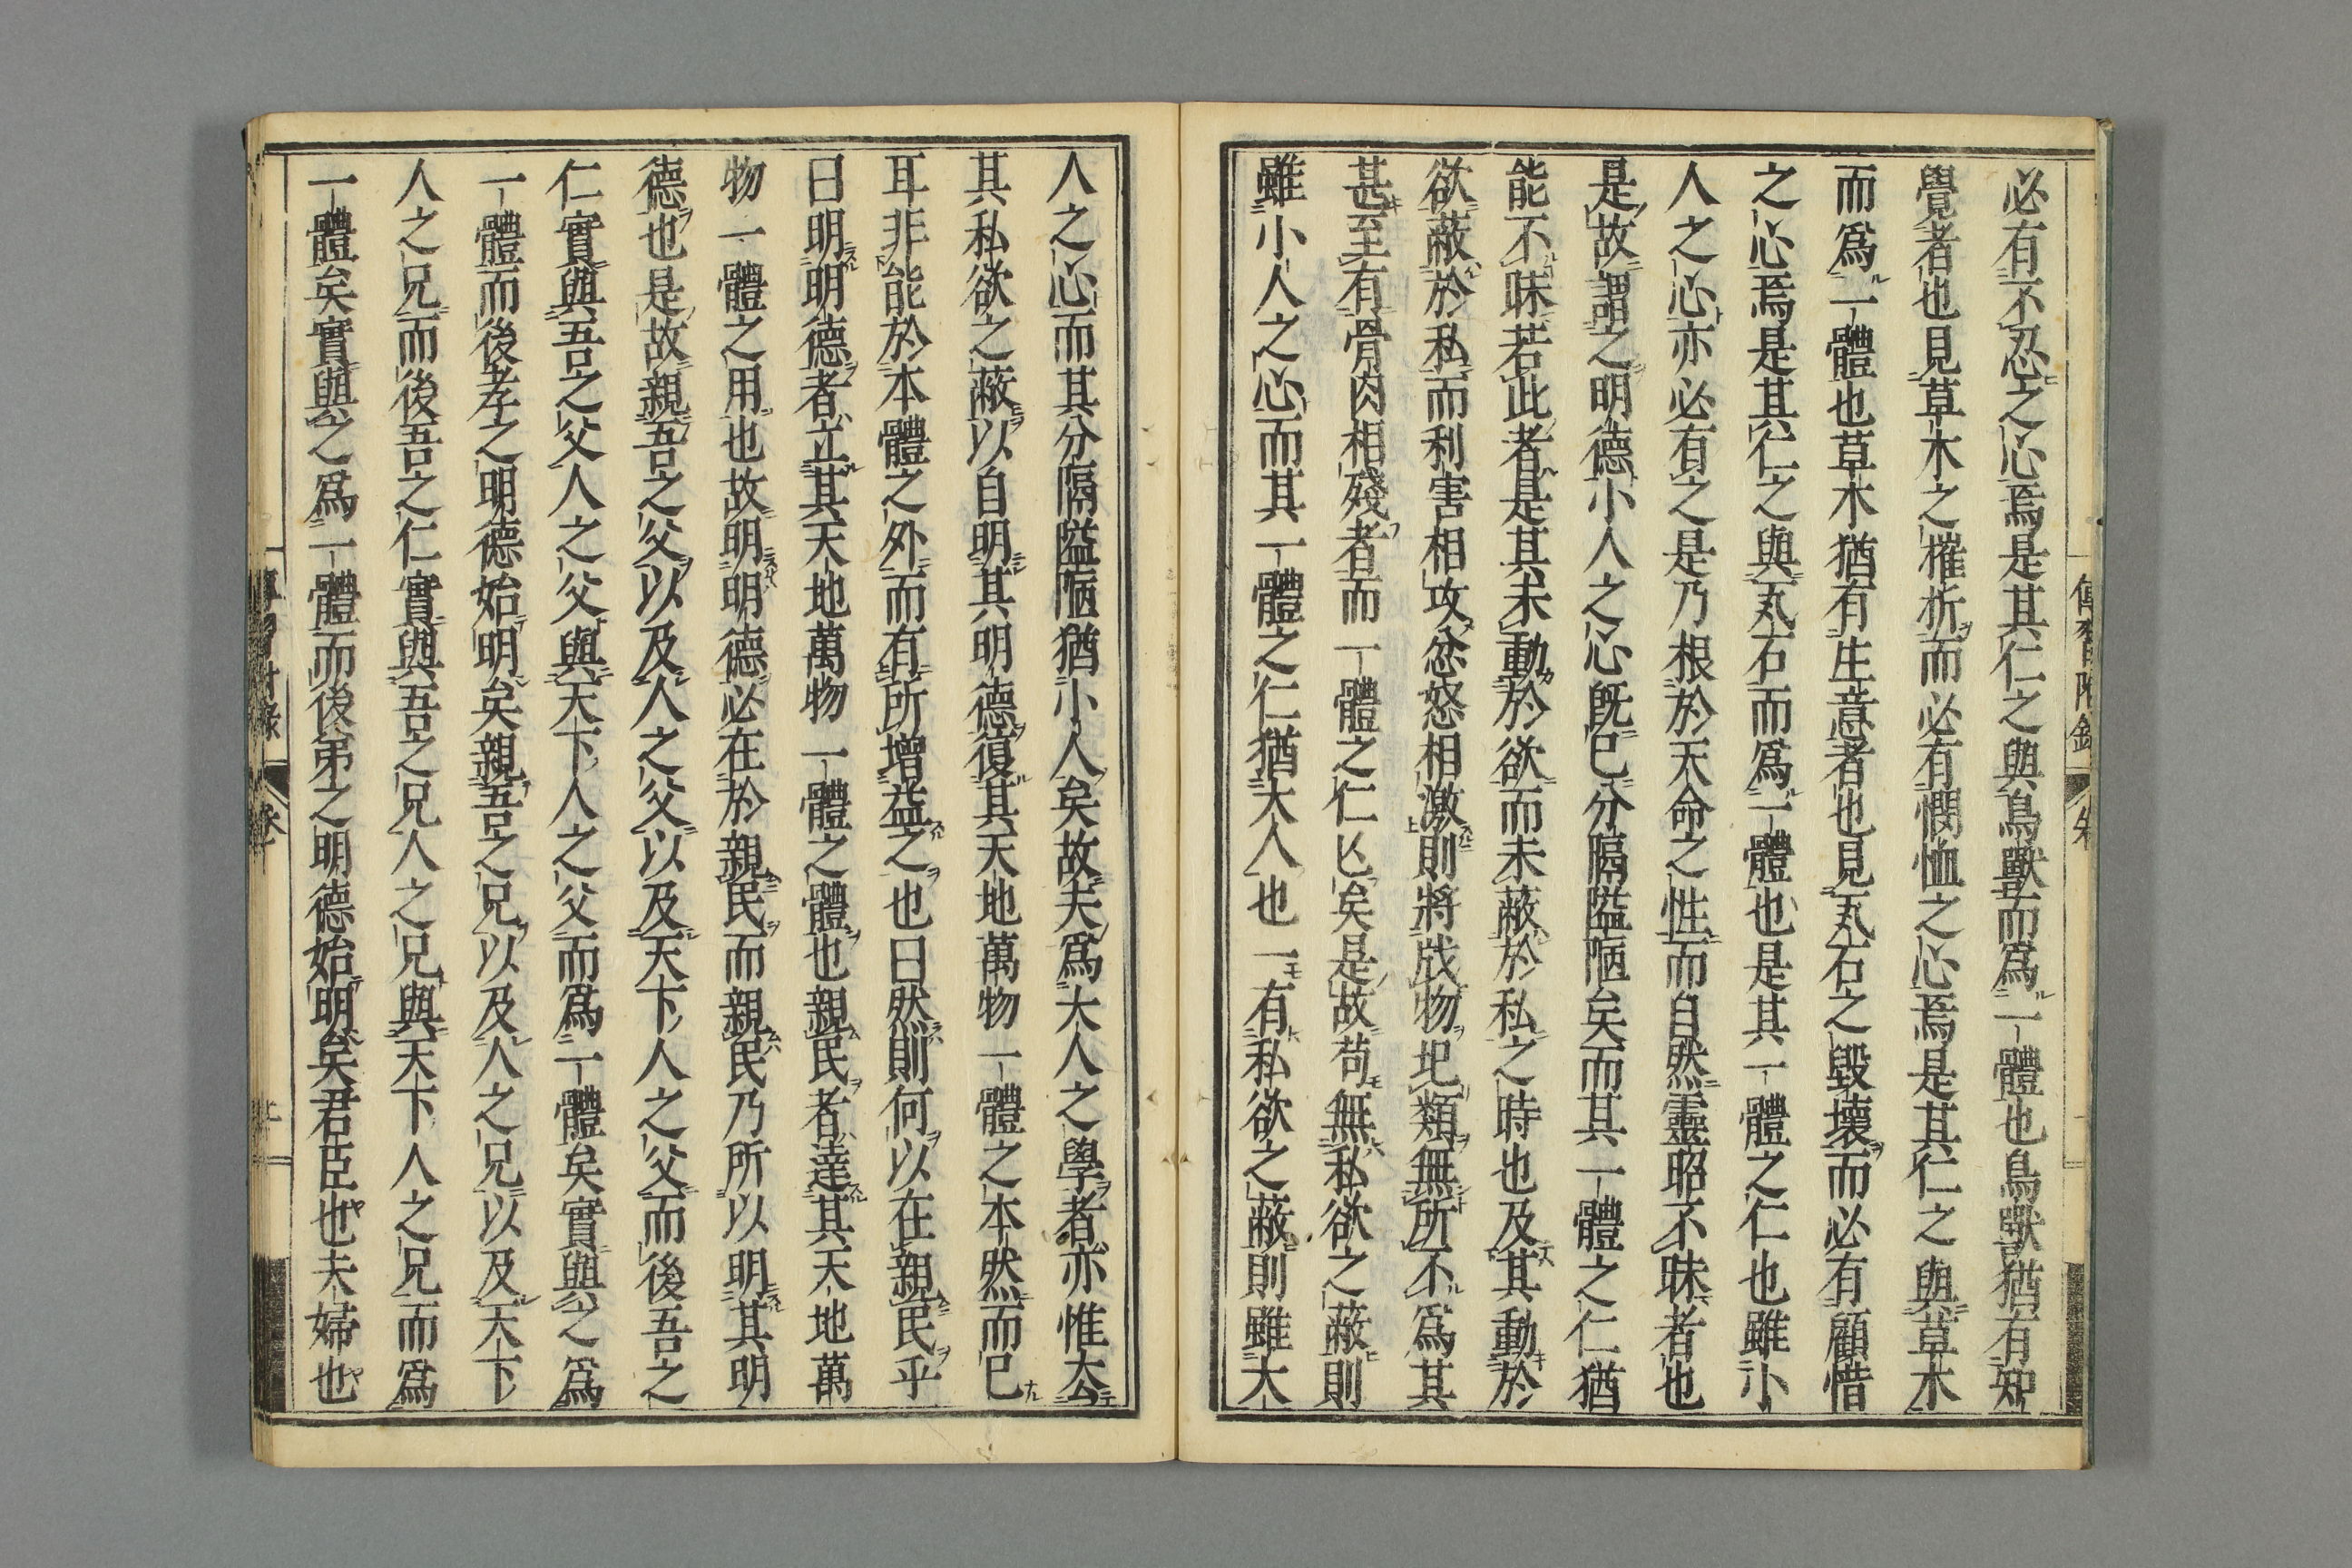 必有不忍之心焉是其仁之與鳥獸而爲一體也鳥獸猶有知
覺者也見草木之摧折而必有憫恤之心焉是其仁之與草木
而爲一體也草木猶有生意者也見瓦石之毀壞而必有顧惜
之心焉是其仁之與瓦石而爲一體也是其一體之仁也雖小
人之心亦必有之是乃根於天命之性而自然靈昭不昧者也
是故謂之明德小人之心旣已分隔隘陋矣而其一體之仁猶
能不昧若此者是其未動於欲而未蔽於私之時也及其動於
欲蔽於私而利害相攻忿怒相激則將戕物圮類無所不爲其
甚至有骨肉相殘者而一體之仁亾矣是故苟無私欲之蔽則
雖小人之心而其一體之仁猶大人也一有私欲之蔽則雖大
人之心而其分隔隘陋猶小人矣故夫爲大人之學者亦惟去
其私欲之蔽以自明其明德復其天地萬物一體之本然而已
耳非能於本體之外而有所增益之也曰然則何以在親民乎
曰明明德者立其天地萬物一體之體也親民者達其天地萬
物一體之用也故明明德必在於親民而親民乃所以明其明
德也是故親吾之父以及人之父以及天下人之父而後吾之
仁實與吾之父人之父與天下人之父而爲一體矣實與之爲
一體而後孝之明德始明矣親吾之兄以及人之兄以及天下
人之兄而後吾之仁實與吾之兄人之兄與天下人之兄而爲
一體矣實與之爲一體而後弟之明德始明矣君臣也夫婦也